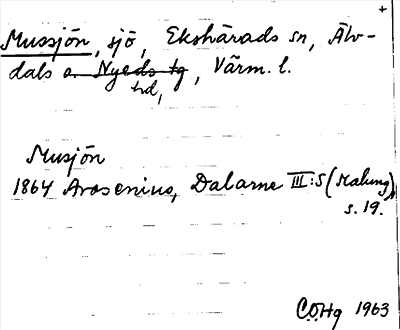 +
Mussjön, sjö, Ekshärads sn, Älv-
dals o. Nyeds tg, Värm. l.
hd,
Musjön
1864 Arosenius, Dalarne III:5 (Malung),
s. 19.
C.O.Hg 1963